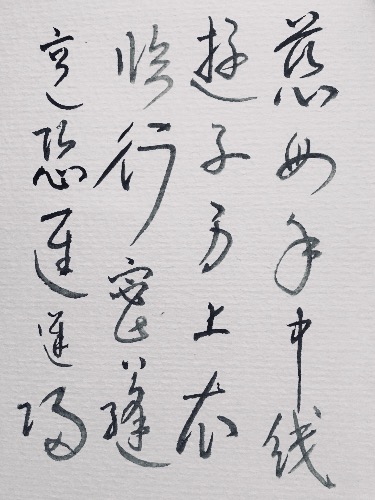 慈母手中线
遊子身上衣
临行密密缝
意恐迟迟归